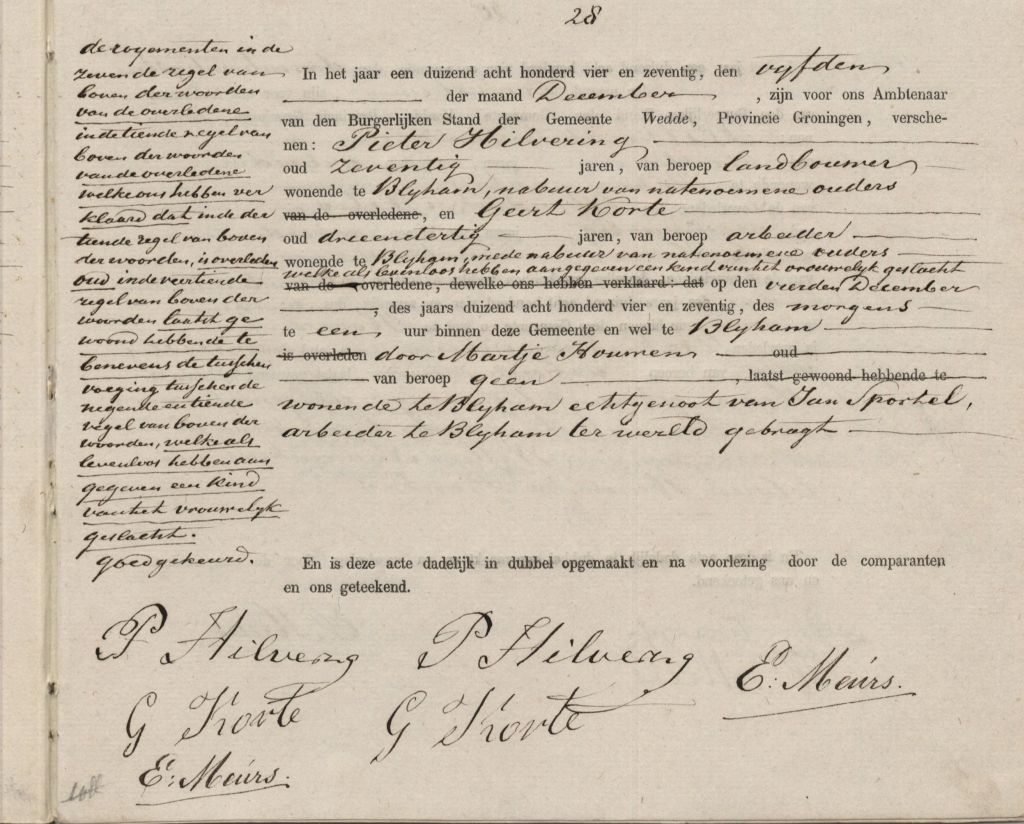 28
de royementen in de
zevende regel van
boven der woorden
van de overledene
in de tiende regel van
boven der woorden
van de overledene
welke ons hebben ver
klaard dat in de der
tiende regel van boven
der woorden, is overleden
oud in de veertiende
regel van boven der
woorden laatst ge
woond hebbende te
benevens de tusschen
voeging tusschen de
negende en tiende
regel van boven der
woorden, welke als
levenloos hebben aan
gegeven een kind
van het vrouwelyk
geslacht.
goedgekeurd.
In het jaar een duizend acht honderd vier en zeventig, den vyfden
der maand December, zijn voor ons Ambtenaar
van den Burgerlijken Stand der Gemeente Wedde, Provincie Groningen, versche-
nen: Pieter Hilvering
oud zeventig jaren, van beroep landbouwer
wonende te Blyham, nabuur van natenoemene ouders
van de overledene, en Geert Korte
oud drieendertig jaren, van beroep arbeider
wonende te Blyham, mede nabuur van natenoemene ouders
welke als levenloos hebben aangegeven een kind van het vrouwelyk geslacht
van de overledene, dewelke ons hebben verklaard: dat op den vierden December
, des jaars duizend acht honderd vier en zeventig, des morgens
te een uur binnen deze Gemeente en wel te Blyham
is overleden door Martje Houwen oud
van beroep geen, laatst gewoond hebbende te
wonende te Blyham echtgenoot van Jan Sportel,
arbeider te Blyham ter wereld gebragt
En is deze acte dadelijk in dubbel opgemaakt en na voorlezing door de comparanten
en ons geteekend.
P Hilvering P Hilvering
E: Meurs.
G Korte G Korte
E: Meurs.